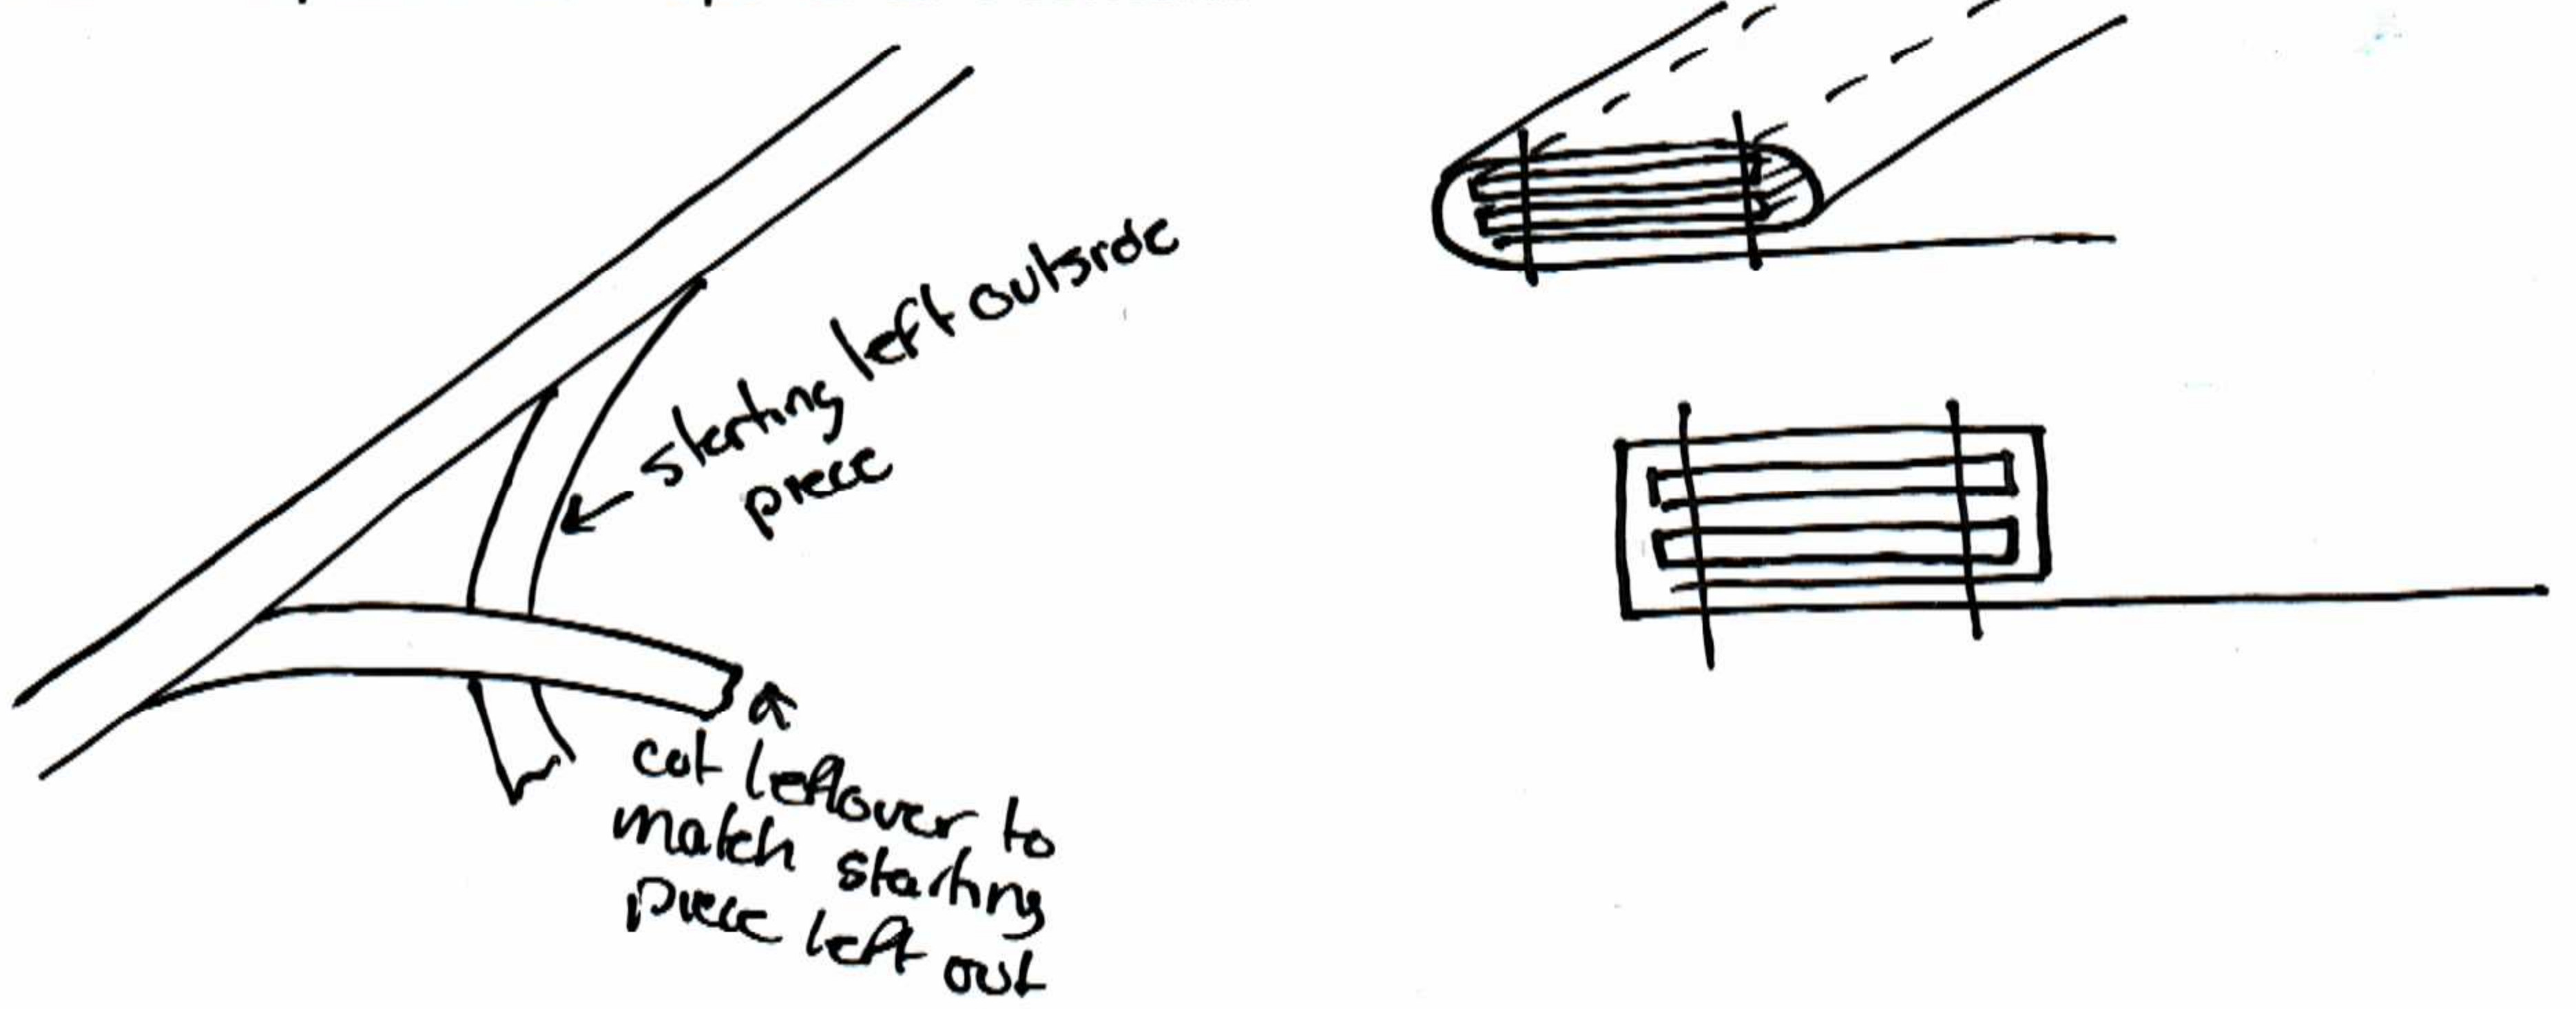 starting left outside
piece
cut leftover to
match starting
piece left out